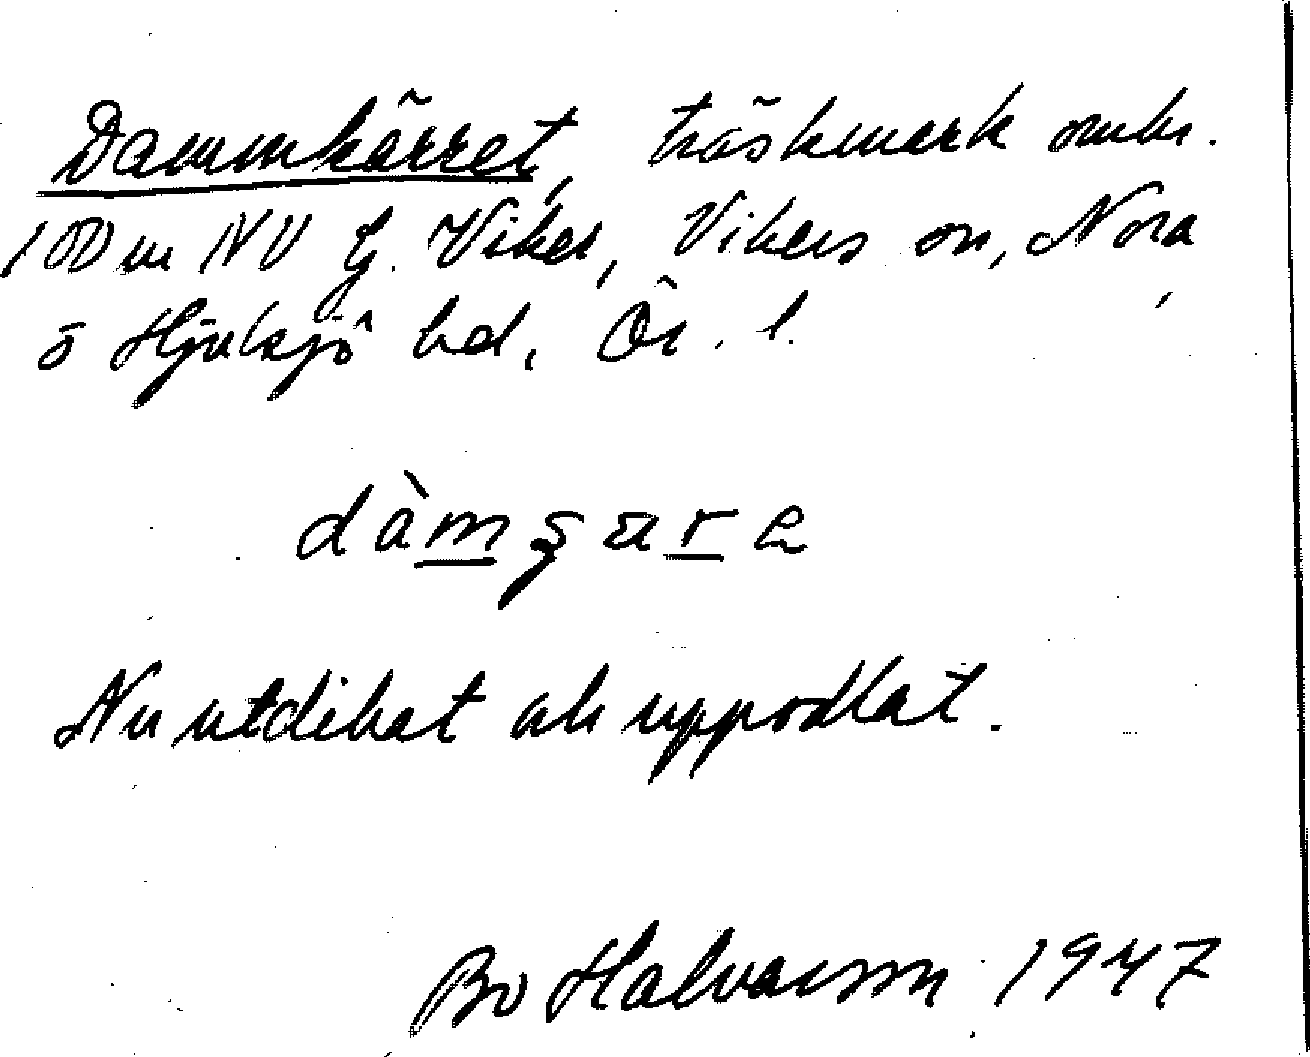 Dammkärret, träskmark omkr.
100 m NV G. Viker, Vikers sn, Nora
o Hjulsjö bd, Ör. l.
dàm
Nu utdikat och uppodlat.
Bo Halvarsson 1947